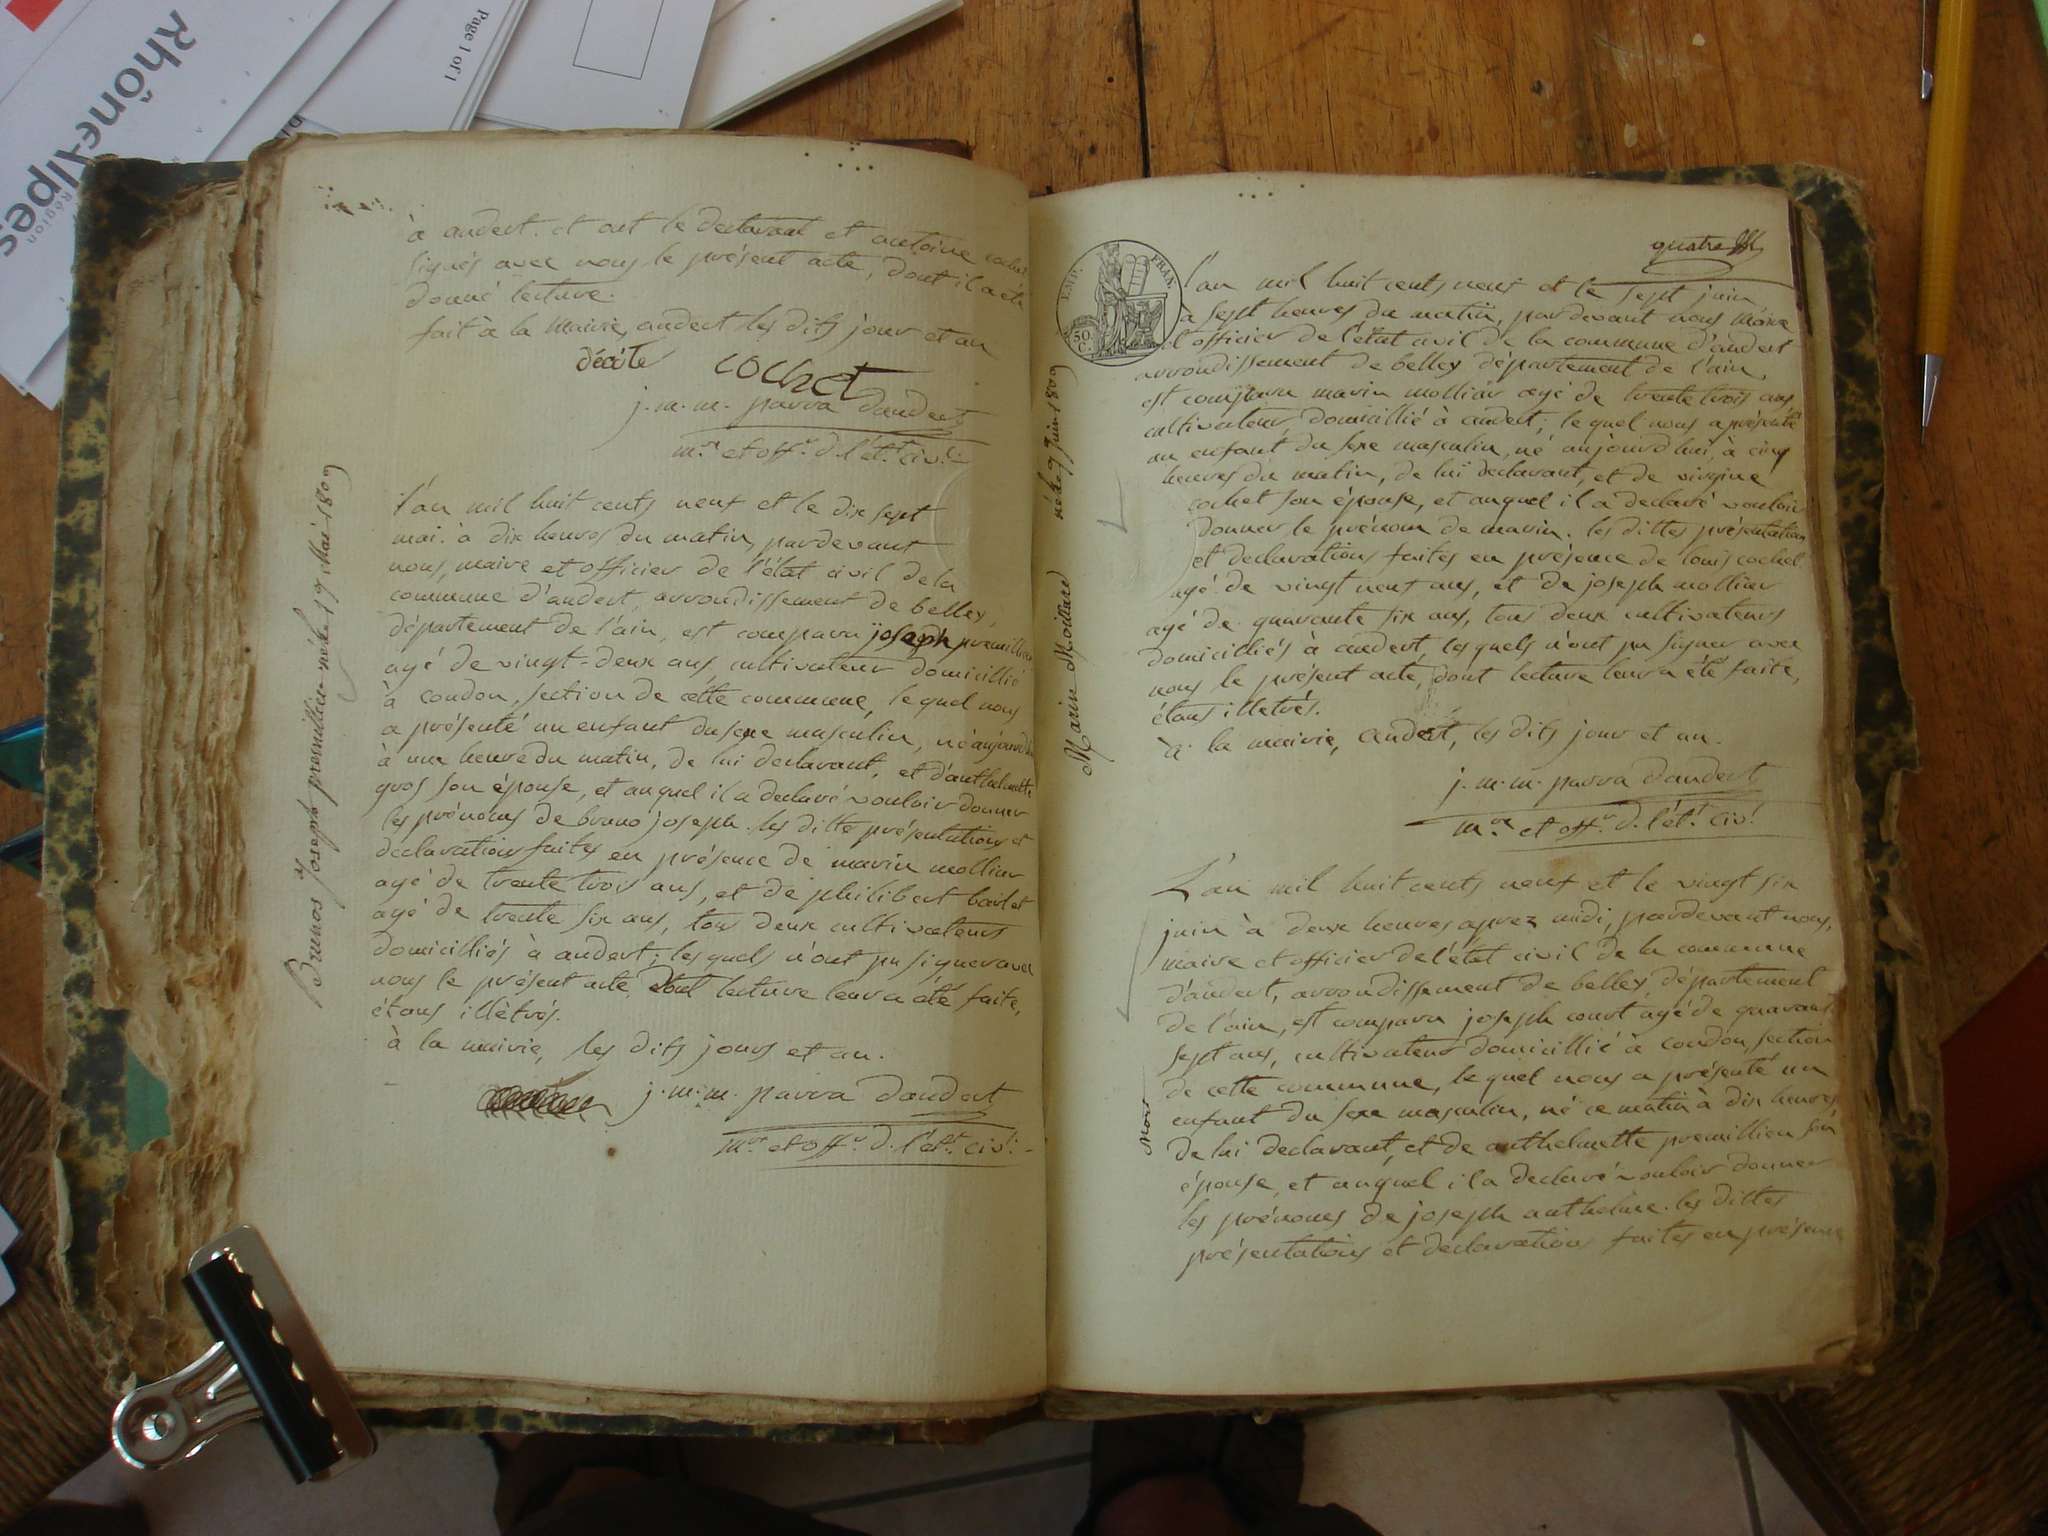 Rhône-Alpes
Région
Page 1 of 1
à andert. et ont le declarant et antoine cochet
signés avec nous le présent acte, dont il a été
donné lecture.
fait à la mairie, andert les dits jour et an
cochet
j. m. m. parra dandert
m.re et off.r d. l'ét.t civ.l
Brunos Joseph premillieu né le 17 Mai 1809
l'an mil huit cents neuf et le dix sept
mai à dix heures du matin, pardevant
nous, maire et officier de l'état civil de la
commune d'andert, arrondissement de belley,
département de l'ain, est comparu joseph premillieu
agé de vingt-deux ans, cultivateur domicillié
à condon, section de cette commune, le quel nous
a présenté un enfant du sexe masculin, né aujourd'hui
à une heure du matin, de lui declarant, et d'anthelmette
gros son épouse, et auquel il a declaré vouloir donner
les prénoms de bruno joseph. les ditte présentations et
déclarations faites en présence de marin mollier
agé de trente trois ans, et de philibert barlet
agé de trente six ans, tous deux cultivateurs
domicilliés à andert; les quels n'ont pu signer avec
nous le présent acte, dont lecture leur a été faite,
étans illétrés.
à la mairie, les dits jours et an.
j. m. m. parra dandert
m.re et off.r d. l'ét.t civ.l
quatre
EMP. FRAN.
50 C.
Marin Moillard né le 7 Juin 1809
l'an mil huit cents neuf et le sept juin,
à sept heures du matin, pardevant nous maire
et officier de l'état civil de la commune d'andert
arrondissement de belley département de l'ain,
est comparu marin mollier agé de trente trois ans
cultivateur, domicillié à andert; le quel nous a présenté
un enfant du sexe masculin, né aujourd'hui, à cinq
heures du matin, de lui declarant, et de virgine
cochet son épouse, et auquel il a declaré vouloir
donner le prénom de marin. les dittes présentations
et declarations faites en présence de louis cochet
agé de vingt neuf ans, et de joseph mollier
agé de quarante six ans, tous deux cultivateurs
domicilliés à andert, les quels n'ont pu signer avec
nous le présent acte, dont lecture leur a été faite,
étans illetrés.
à la mairie, andert, les dits jour et an.
j. m. m. parra dandert
m.re et off.r d. l'ét.t civ.l
L'an mil huit cents neuf et le vingt six
juin à deux heures aprez midi, pardevant nous,
maire et officier de l'état civil de la commune
d'andert, arrondissement de belley département
de l'ain, est comparu joseph court agé de quarante
sept ans, cultivateur domicillié à condon, section
de cette commune, le quel nous a présenté un
enfant du sexe masculin, né ce matin à dix heures
mort
de lui declarant, et de anthelmette premillieu son
épouse, et auquel il a declaré vouloir donner
les prénoms de joseph anthelme. les dittes
présentations et declarations faites en présence